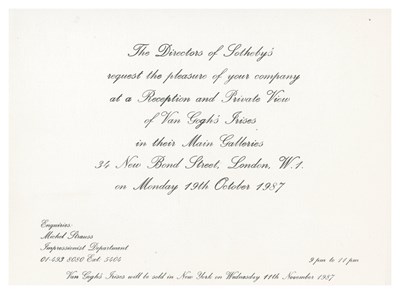 The Directors of Sotheby's
request the pleasure of your company
at a Reception and Private View
of Van Gogh's Irises
in their Main Galleries
34 New Bond Street, London, W.1.
on Monday 19th October 1987
Enquiries:
Michel Strauss
Impressionist Department
01-493 8080 Ext. 5404
9 pm to 11 pm
Van Gogh's Irises will be sold in New York on Wednesday 11th November 1987